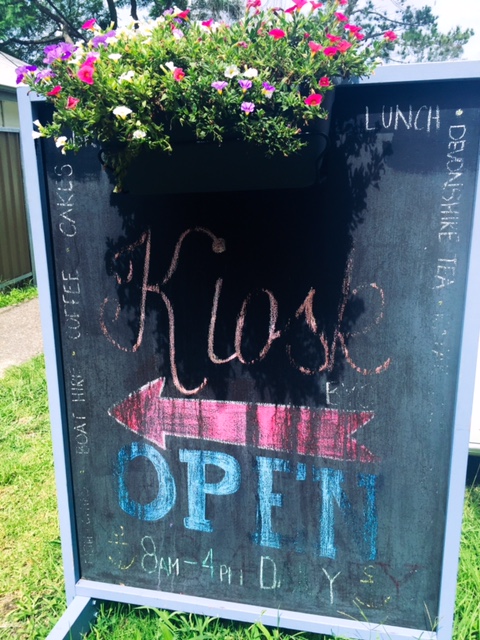 LUNCH •
DEVONSHIRE TEA •
BOAT HIRE • COFFEE • CAKES
Kiosk
OPEN
8AM-4PM DAILY